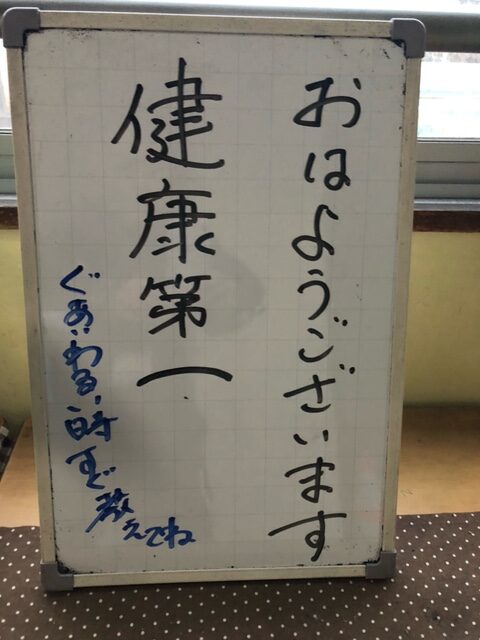 おはようございます
健康第一
ぐあいわるい時すぐ教えてね